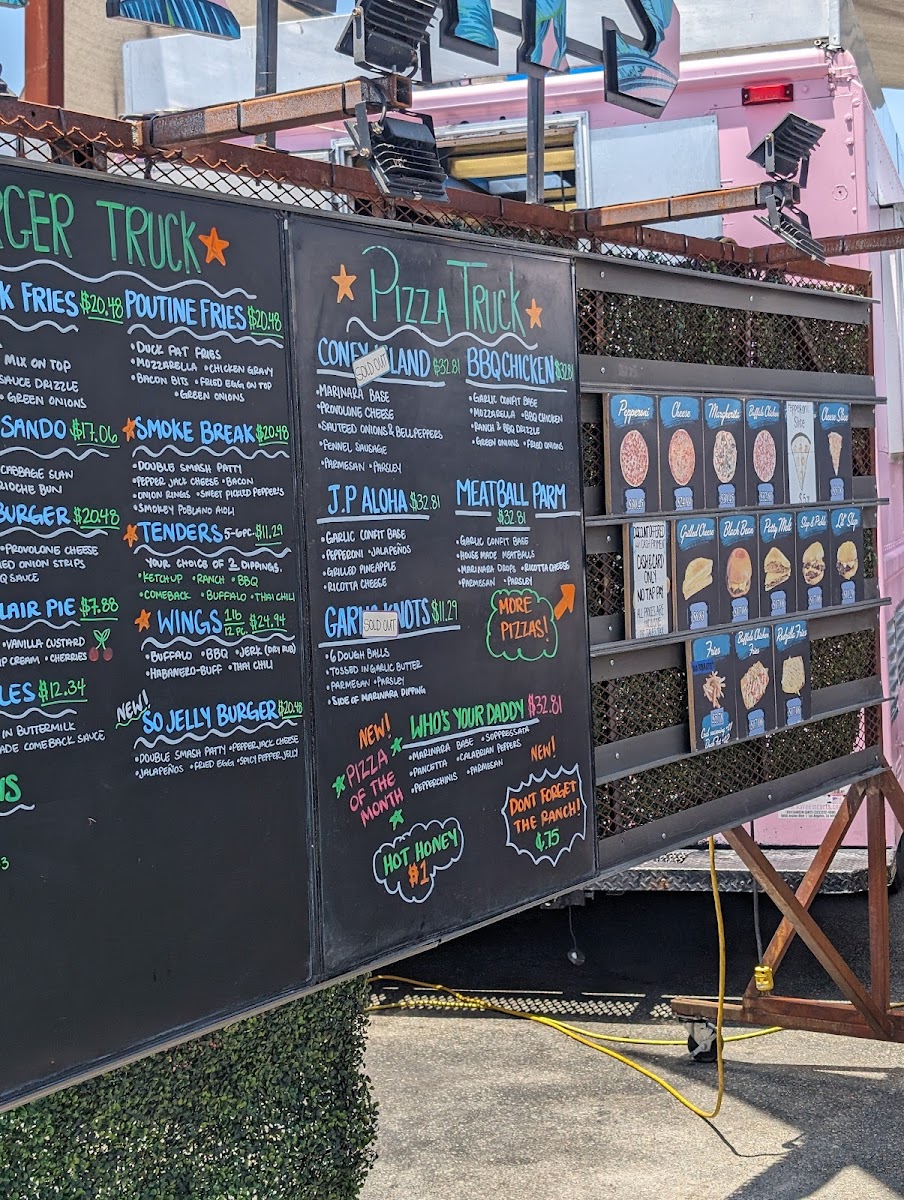 RGER TRUCK
K FRIES $20.48
MIX ON TOP
SAUCE DRIZZLE
• GREEN ONIONS
SANDO $17.06
CABBAGE SLAW
BRIOCHE BUN
BURGER $20.48
• PROVOLONE CHEESE
IED ONION STRIPS
Q SAUCE
LAIR PIE $7.88
• VANILLA CUSTARD
P CREAM • CHERRIES
LES $12.34
IN BUTTERMILK
ADE COMEBACK SAUCE
POUTINE FRIES $20.48
• DUCK FAT FRIES
• MOZZARELLA • CHICKEN GRAVY
• BACON BITS • FRIED EGG ON TOP
• GREEN ONIONS
SMOKE BREAK $20.48
• DOUBLE SMASH PATTY
• PEPPER JACK CHEESE • BACON
• ONION RINGS • SWEET PICKLED PEPPERS
• SMOKEY POBLANO AIOLI
TENDERS 5-6PC $11.29
YOUR CHOICE OF 2 DIPPINGS.
• KETCHUP • RANCH • BBQ
• COMEBACK • BUFFALO • THAI CHILI
WINGS 1 LB 12 PC. $24.94
• BUFFALO • BBQ • JERK (DRY RUB)
• HABANERO-BUFF • THAI CHILI
NEW!
SO JELLY BURGER $20.48
• DOUBLE SMASH PATTY • PEPPERJACK CHEESE
• JALAPEÑOS • FRIED EGG • SPICY PEPPER JELLY
PIZZA TRUCK
CONEY ISLAND $32.81
SOLD OUT
• MARINARA BASE
• PROVOLONE CHEESE
• SAUTEED ONIONS & BELLPEPPERS
• FENNEL SAUSAGE
• PARMESAN • PARSLEY
BBQ CHICKEN $32.81
• GARLIC CONFIT BASE
• MOZZARELLA • BBQ CHICKEN
• RANCH & BBQ DRIZZLE
• GREEN ONIONS • FRIED ONIONS
J.P ALOHA $32.81
• GARLIC CONFIT BASE
• PEPPERONI • JALAPEÑOS
• GRILLED PINEAPPLE
• RICOTTA CHEESE
MEATBALL PARM
$32.81
• GARLIC CONFIT BASE
• HOUSE MADE MEATBALLS
• MARINARA DROPS • RICOTTA CHEESE
• PARMESAN • PARSLEY
GARLIC KNOTS $11.29
SOLD OUT
• 6 DOUGH BALLS
• TOSSED IN GARLIC BUTTER
• PARMESAN • PARSLEY
• SIDE OF MARINARA DIPPING
MORE
PIZZAS!
NEW!
PIZZA
OF THE
MONTH
WHO'S YOUR DADDY $32.81
• MARINARA BASE • SOPPRESSATA
• PANCETTA • CALABRIAN PEPPERS
• PEPPERCHINIS • PARMESAN
HOT HONEY
$1
NEW!
DONT FORGET
THE RANCH!
¢.75
Pepperoni
Cheese
Margherita
Buffalo Chicken
Slice
Cheese Slice
DASHBOARD
ONLY
NO TAP PAY
Grilled Cheese
Black Bean
Patty Melt
Slap & Pickle
Lil' Slap
Fries
Buffalo Chicken Fries
Rotzilla Fries